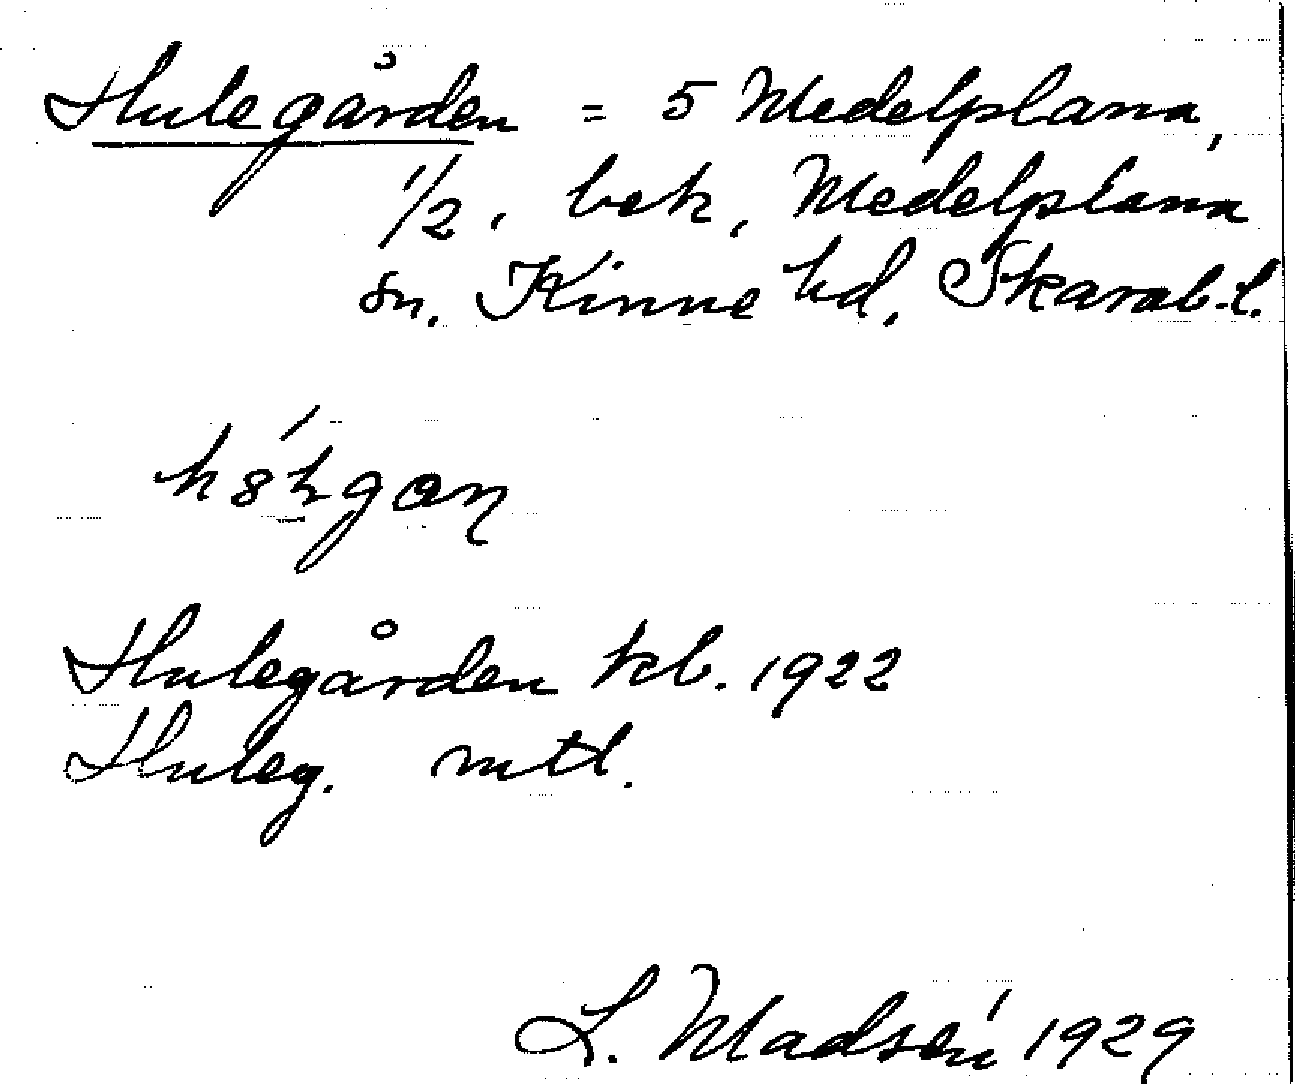 Hulegården = 5 Medelplana,
1/2, bek, Medelplana
sn. Kinne hd, Skarab. l.
Hulegården kb. 1922
Huleg. mtl.
L. Madsén 1929